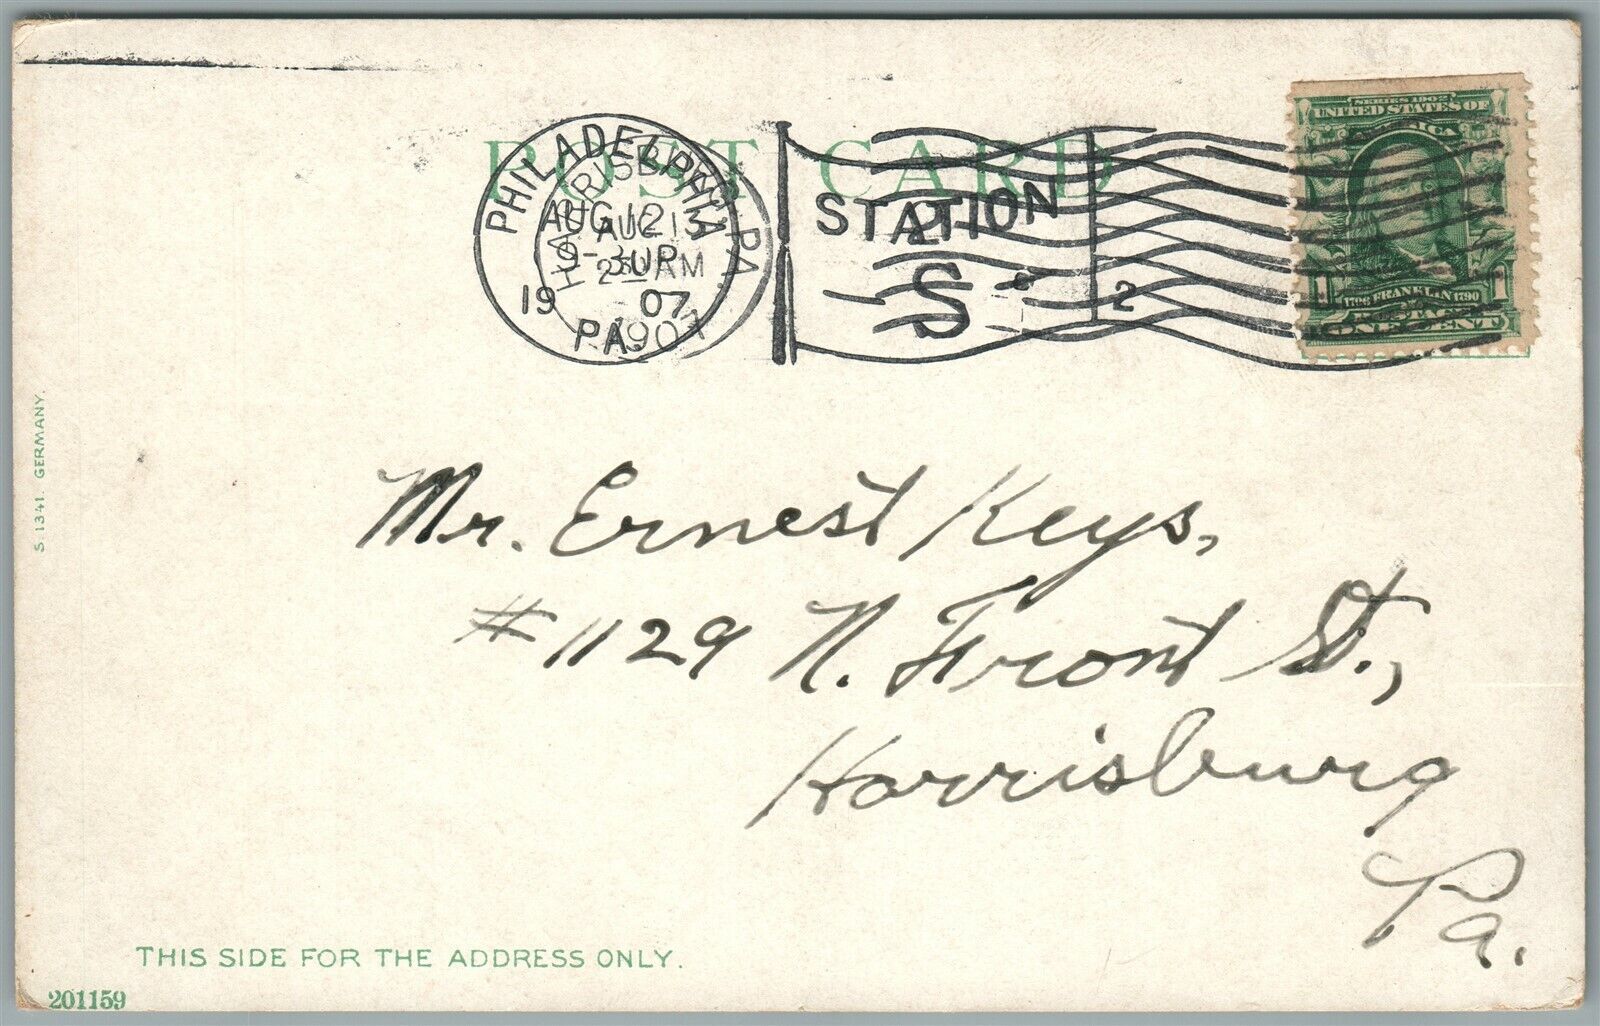 POST CARD
PHILADELPHIA
AUG 12
9-30P
19 07
PA.
HARRISBURG, PA.
AUG 13
AM
1907
STATION
S
2
SERIES 1902
UNITED STATES OF
AMERICA
1 1
1706 FRANKLIN 1790
POSTAGE
ONE CENT
Mr. Ernest Keys,
#1129 N. Front St.,
Harrisburg
Pa.
S. 1341. GERMANY.
THIS SIDE FOR THE ADDRESS ONLY.
201159